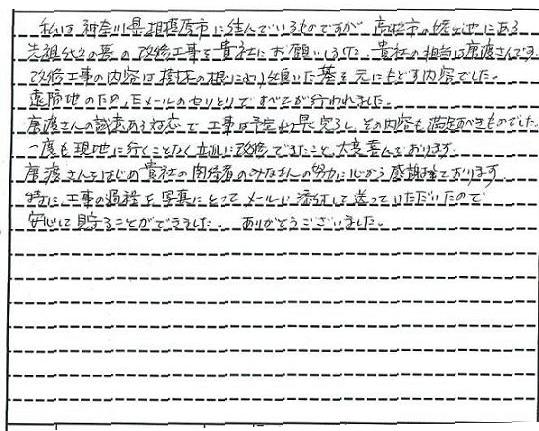 私は神奈川県相模原市に住んでいるものですが、高松市の 地にある
先祖代々の墓の改修工事を貴社にお願いしました。貴社の担当は 渡さんです。
改修工事の内容は樹木の根により傾いた墓を元にもどす内容でした。
遠隔地のため、Eメールのやりとりですべてが行われました。
渡さんの誠意ある対応で、工事は予定より早く完了し、その内容も満足すべきものでした。
一度も現地に行くことなく立派に改修できたこと、大変喜んでおります。
渡さんをはじめ貴社の関係者のみなさんの努力に心から感謝申し上げております。
特に、工事の過程を写真にとってメールに添付して送っていただいたので
安心して見守ることができました。ありがとうございました。